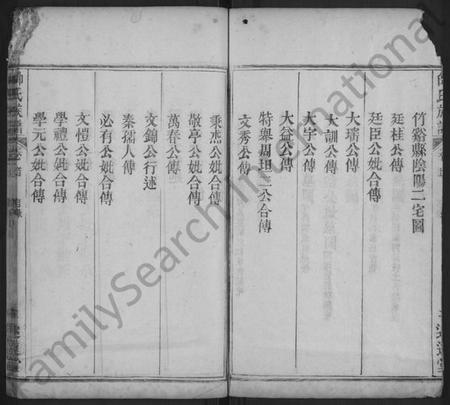 竹谿縣陰陽二宅圖
廷桂公傳
廷臣公妣合傳
大瑞公傳
大訓公傳
大宇公傳
大益公傳
特舉周珇二公合傳
文秀公傳
秉杰公妣合傳
敬亭公妣合傳
萬春公傳
文錦公行迹
秦孺人傳
必有公妣合傳
文愷公妣合傳
學禮公妣合傳
學元公妣合傳
氏族譜
FamilySearch International